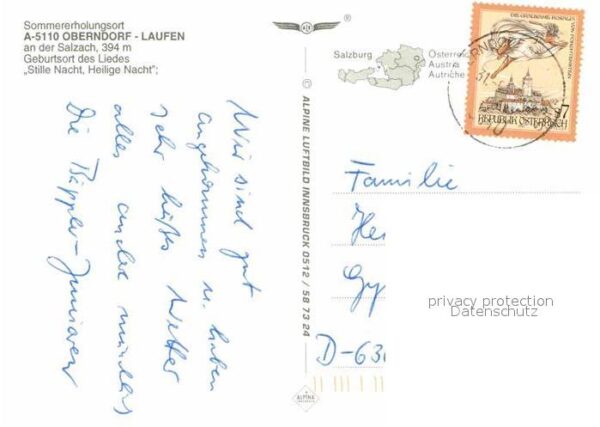 Sommererholungsort
A-5110 OBERNDORF - LAUFEN
an der Salzach, 394 m
Geburtsort des Liedes
„Stille Nacht, Heilige Nacht";
Wir sind gut
angekommen u. haben
sehr heißes Wetter
alles andere mündlich
Die
© ALPINE LUFTBILD INNSBRUCK 0512 / 58 73 24
ALPINE
Salzburg
Österreich
Austria
Autriche
S 7
REPUBLIK ÖSTERREICH
Familie
He
D-63
privacy protection
Datenschutz